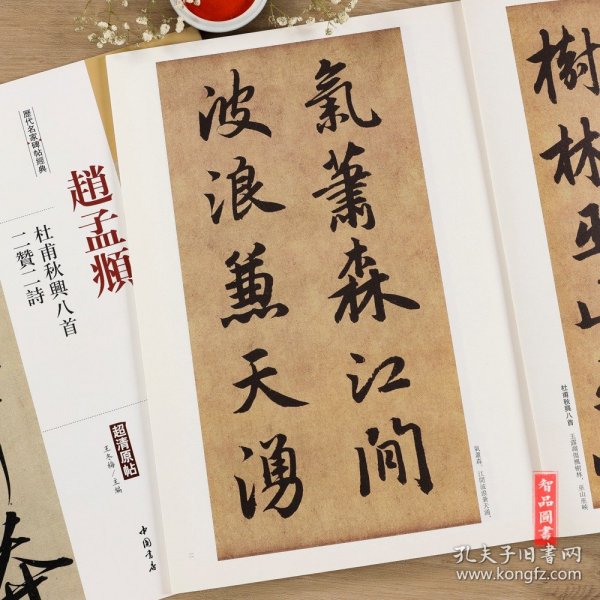 歷代名家碑帖經典
趙孟頫
杜甫秋興八首
二贊二詩
超清原帖
王冬梅/主編
中國書店
氣蕭森江間
波浪兼天湧
氣蕭森，江間波浪兼天湧。
樹林巫山
杜甫秋興八首
玉露凋傷楓樹林，巫山巫峽
智品圖書
孔夫子旧书网
www.kongfz.com